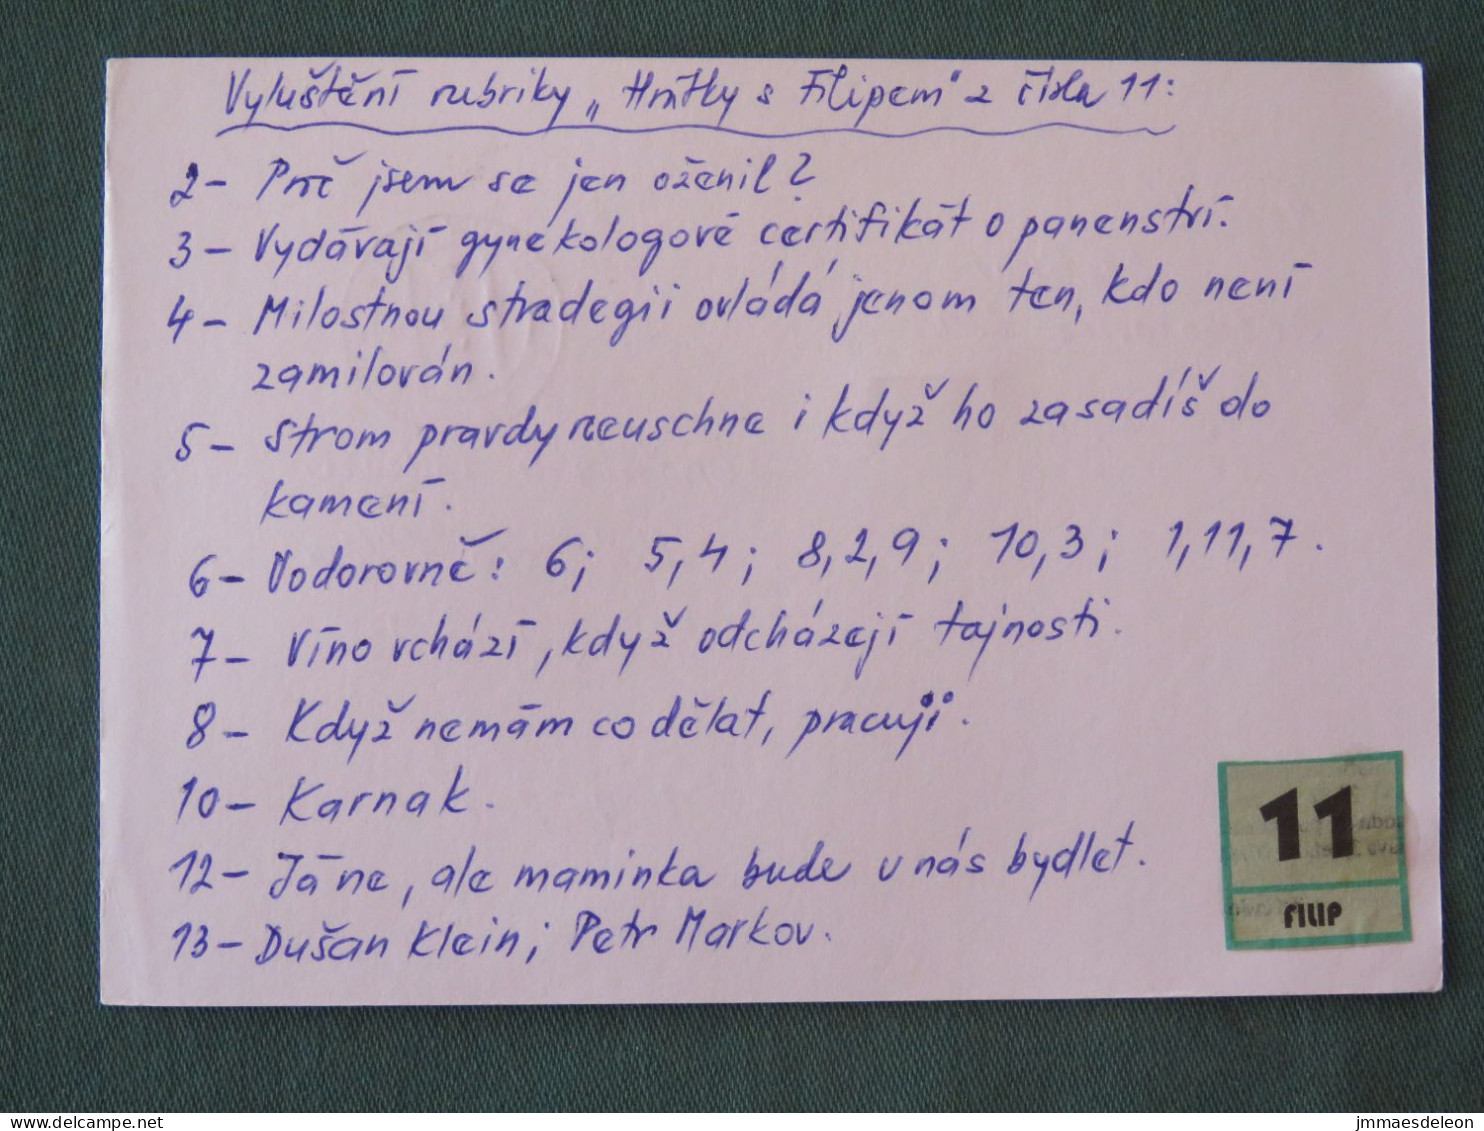 Vyluštění rubriky „Hrátky s Filipem" z čísla 11:
2- Proč jsem se jen oženil?
3- Vydávají gynekologové certifikát o panenství.
4- Milostnou stradegii ovládá jenom ten, kdo není
zamilován.
5- Strom pravdy neuschne i když ho zasadíš do
kamení.
6- Vodorovně: 6; 5,4; 8,2,9; 10,3; 1,11,7.
7- Víno vchází, když odcházejí tajnosti.
8- Když nemám co dělat, pracuji.
10- Karnak.
12- Já ne, ale maminka bude u nás bydlet.
13- Dušan Klein; Petr Markov.
11
FILIP
hipostcard.com
jmmaesdeleon